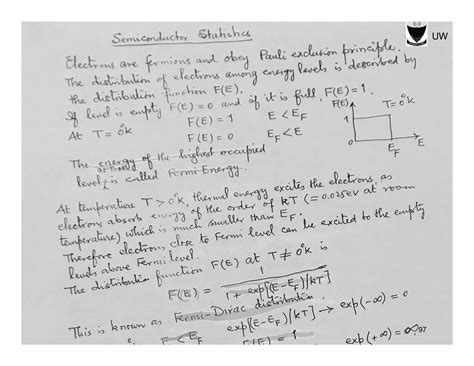 UW
Semiconductor Statistics
Electrons are fermions and obey Pauli exclusion principle.
The distribution of electrons among energy levels is described by
the distribution function F(E).
If level is empty F(E) = 0 and if it is full F(E) = 1.
At T = 0°K F(E) = 1 E < E_F
F(E) = 0 E_F < E
F(E)
1
T = 0°K
E_F
E
The energy of the highest occupied
level at T=0°K is called Fermi Energy.
At temperature T > 0°K, thermal energy excites the electrons, as
electrons absorb energy of the order of kT (= 0.025eV at room
temperature) which is much smaller than E_F.
Therefore electrons close to Fermi level can be excited to the empty
levels above Fermi level.
The distribution function F(E) at T ≠ 0°K is
F(E) = 1 / 1 + exp[(E-E_F)/kT]
This is known as Fermi-Dirac distribution.
E < E_F exp[(E-E_F)/kT] → exp(-∞) = 0
F(E) = 1 exp(+∞) = ∞